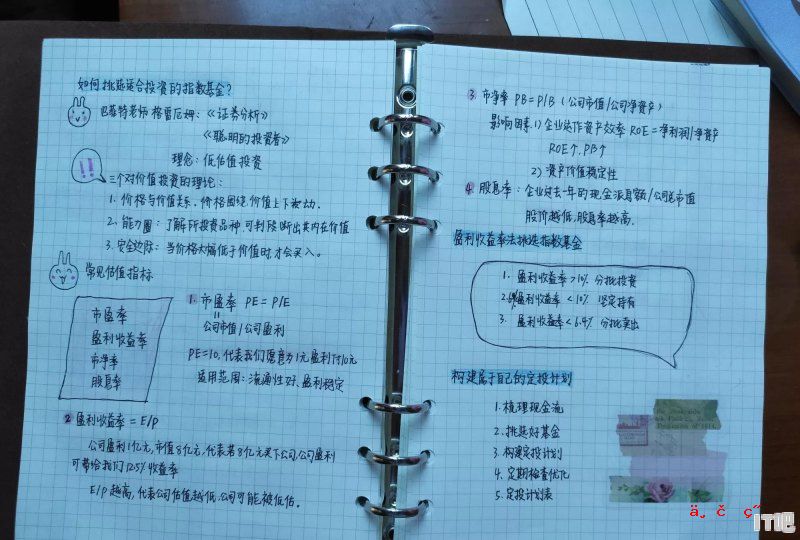 如何挑选适合投资的指数基金?
巴菲特老师 格雷厄姆:《证券分析》
《聪明的投资者》
理念:低估值投资
!!
三个对价值投资的理论:
1. 价格与价值关系,价格围绕价值上下波动.
2. 能力圈:了解所投资品种,可判断出其内在价值
3. 安全边际:当价格大幅低于价值时,才会买入。
常见估值指标
市盈率
盈利收益率
市净率
股息率
1. 市盈率 PE = P/E
公司市值/公司盈利
PE=10,代表我们愿意为1元盈利付10元
适用范围:流通性好、盈利稳定
2 盈利收益率 = E/P
公司盈利1亿元,市值8亿元,代表若8亿元买下公司,公司盈利
可带给我们12.5%收益率
E/P越高,代表公司估值越低,公司可能被低估。
3. 市净率 PB=P/B (公司市值/公司净资产)
影响因素:1) 企业运作资产效率 ROE=净利润/净资产
ROE↑, PB↑
2) 资产价值稳定性
4. 股息率:企业过去一年的现金派息额/公司总市值
股价越低,股息率越高.
盈利收益率法挑选指数基金
1. 盈利收益率>10% 分批投资
2. 盈利收益率<10% 坚定持有
3. 盈利收益率<6.4% 分批卖出
构建属于自己的定投计划
1. 梳理现金流
2. 挑选好基金
3. 构建定投计划
4. 定期检查优化
5. 定投计划表
IT吧